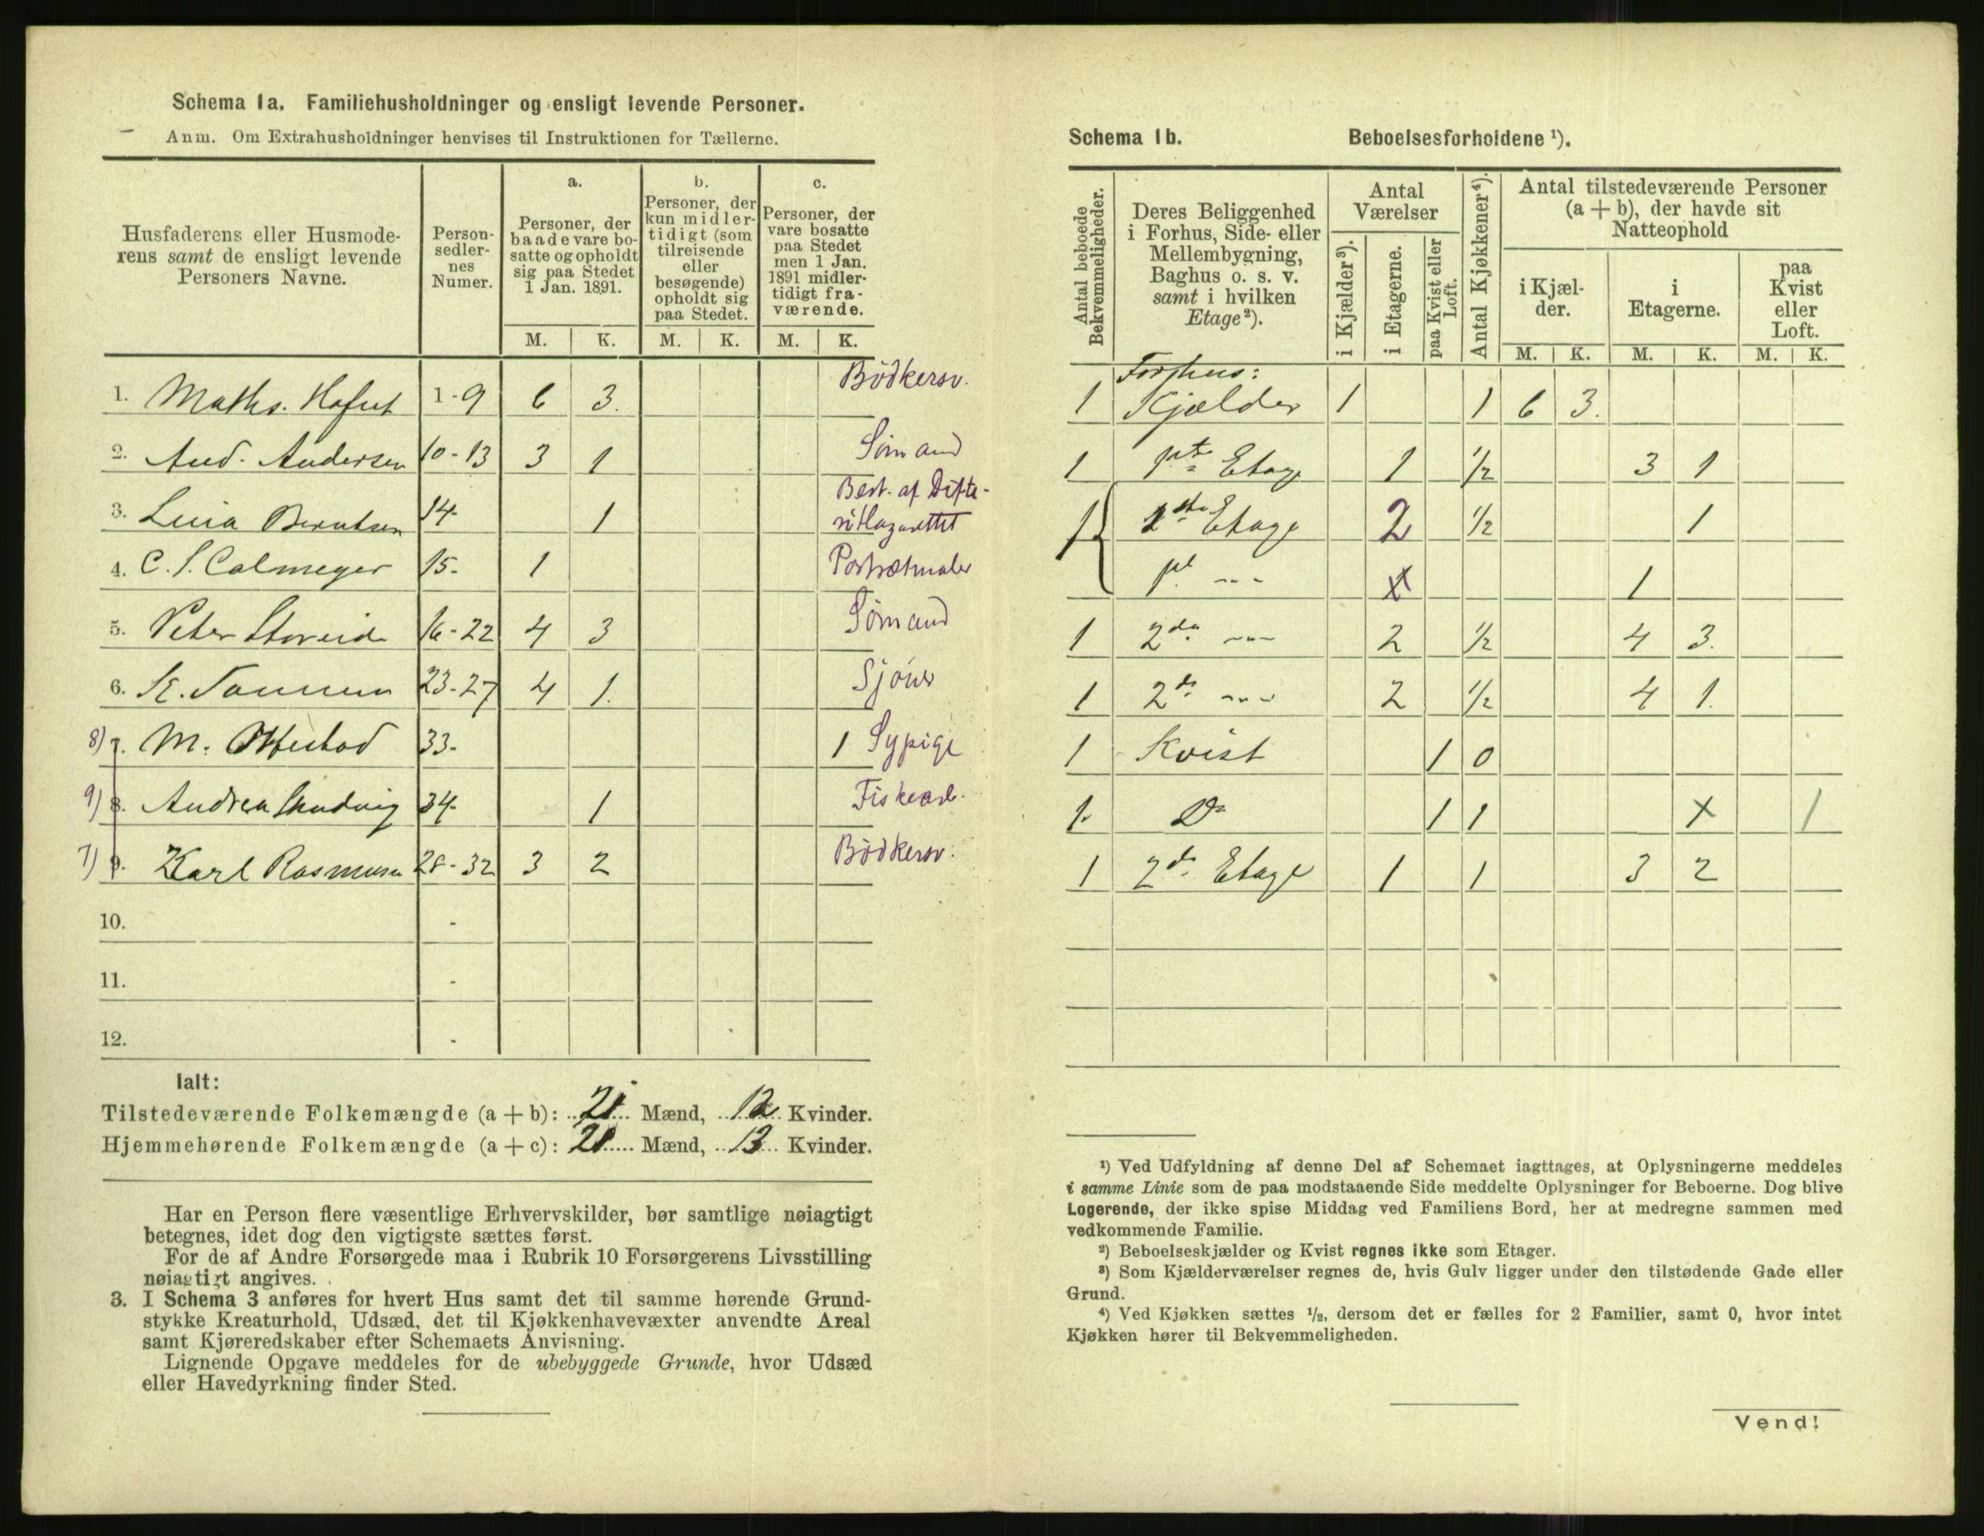 Schema 1a. Familiehusholdninger og ensligt levende Personer.
Anm. Om Extrahusholdninger henvises til Instruktionen for Tællerne.
Husfaderens eller Husmoderens samt de ensligt levende Personers Navne.
Person-sedler-nes Numer.
a.
Personer, der baade vare bosatte og opholdt sig paa Stedet 1 Jan. 1891.
b.
Personer, der kun midlertidigt (som tilreisende eller besøgende) opholdt sig paa Stedet.
c.
Personer, der vare bosatte paa Stedet men 1 Jan. 1891 midlertidigt fraværende.
M. K. M. K. M. K.
1. Maths. 1-9 6 3. Bödkersv.
2. And. Andersen 10-13 3 1 Sömand
3. Berntsen 14- 1 Best. af Difteritlazarettet
4. C. S. Calmeyer 15- 1 Portrætmaler
5. Peter 16-22 4 3 Sömand
6. 23-27 4 1. Sjöur
8) 7. M. 33- 1 Sypige
9) 8. Andrea 34- 1 Fiskearb.
7) 9. Karl Rasmusen 28-32 3 2 Bödkersv.
10. -
11. -
12. -
Ialt:
Tilstedeværende Folkemængde (a + b): 21 Mænd, 12 Kvinder.
Hjemmehørende Folkemængde (a + c): 21 Mænd, 13 Kvinder.
Har en Person flere væsentlige Erhvervskilder, bør samtlige nøiagtigt
betegnes, idet dog den vigtigste sættes først.
For de af Andre Forsørgede maa i Rubrik 10 Forsørgerens Livsstilling
nøiagtigt angives.
3. I Schema 3 anføres for hvert Hus samt det til samme hørende Grund-
stykke Kreaturhold, Udsæd, det til Kjøkkenhavevæxter anvendte Areal
samt Kjøreredskaber efter Schemaets Anvisning.
Lignende Opgave meddeles for de ubebyggede Grunde, hvor Udsæd
eller Havedyrkning finder Sted.
Schema 1b. Beboelsesforholdene ¹).
Antal beboede Bekvemmeligheder.
Deres Beliggenhed i Forhus, Side- eller Mellembygning, Baghus o. s. v. samt i hvilken Etage²).
Antal Værelser
i Kjælder³).
i Etagerne.
paa Kvist eller Loft.
Antal Kjøkkener⁴).
Antal tilstedeværende Personer (a + b), der havde sit Natteophold
i Kjælder.
i Etagerne.
paa Kvist eller Loft.
M. K. M. K. M. K.
Forhus:
1 Kjælder 1 1 6 3.
1 1ste Etage 1 1/2 3 1
1 1ste Etage 2 1/2 1
1ste -- 1
1 2den --- 2 1/2 4 3.
1 2den --- 2 1/2 4 1.
1 Kvist 1 0
1. Do 1 1 x 1
1 2den Etage 1 1 3 2
¹) Ved Udfyldning af denne Del af Schemaet iagttages, at Oplysningerne meddeles
i samme Linie som de paa modstaaende Side meddelte Oplysninger for Beboerne. Dog blive
Logerende, der ikke spise Middag ved Familiens Bord, her at medregne sammen med
vedkommende Familie.
²) Beboelseskjælder og Kvist regnes ikke som Etager.
³) Som Kjælderværelser regnes de, hvis Gulv ligger under den tilstødende Gade eller
Grund.
⁴) Ved Kjøkken sættes ¹/₂, dersom det er fælles for 2 Familier, samt 0, hvor intet
Kjøkken hører til Bekvemmeligheden.
Vend!